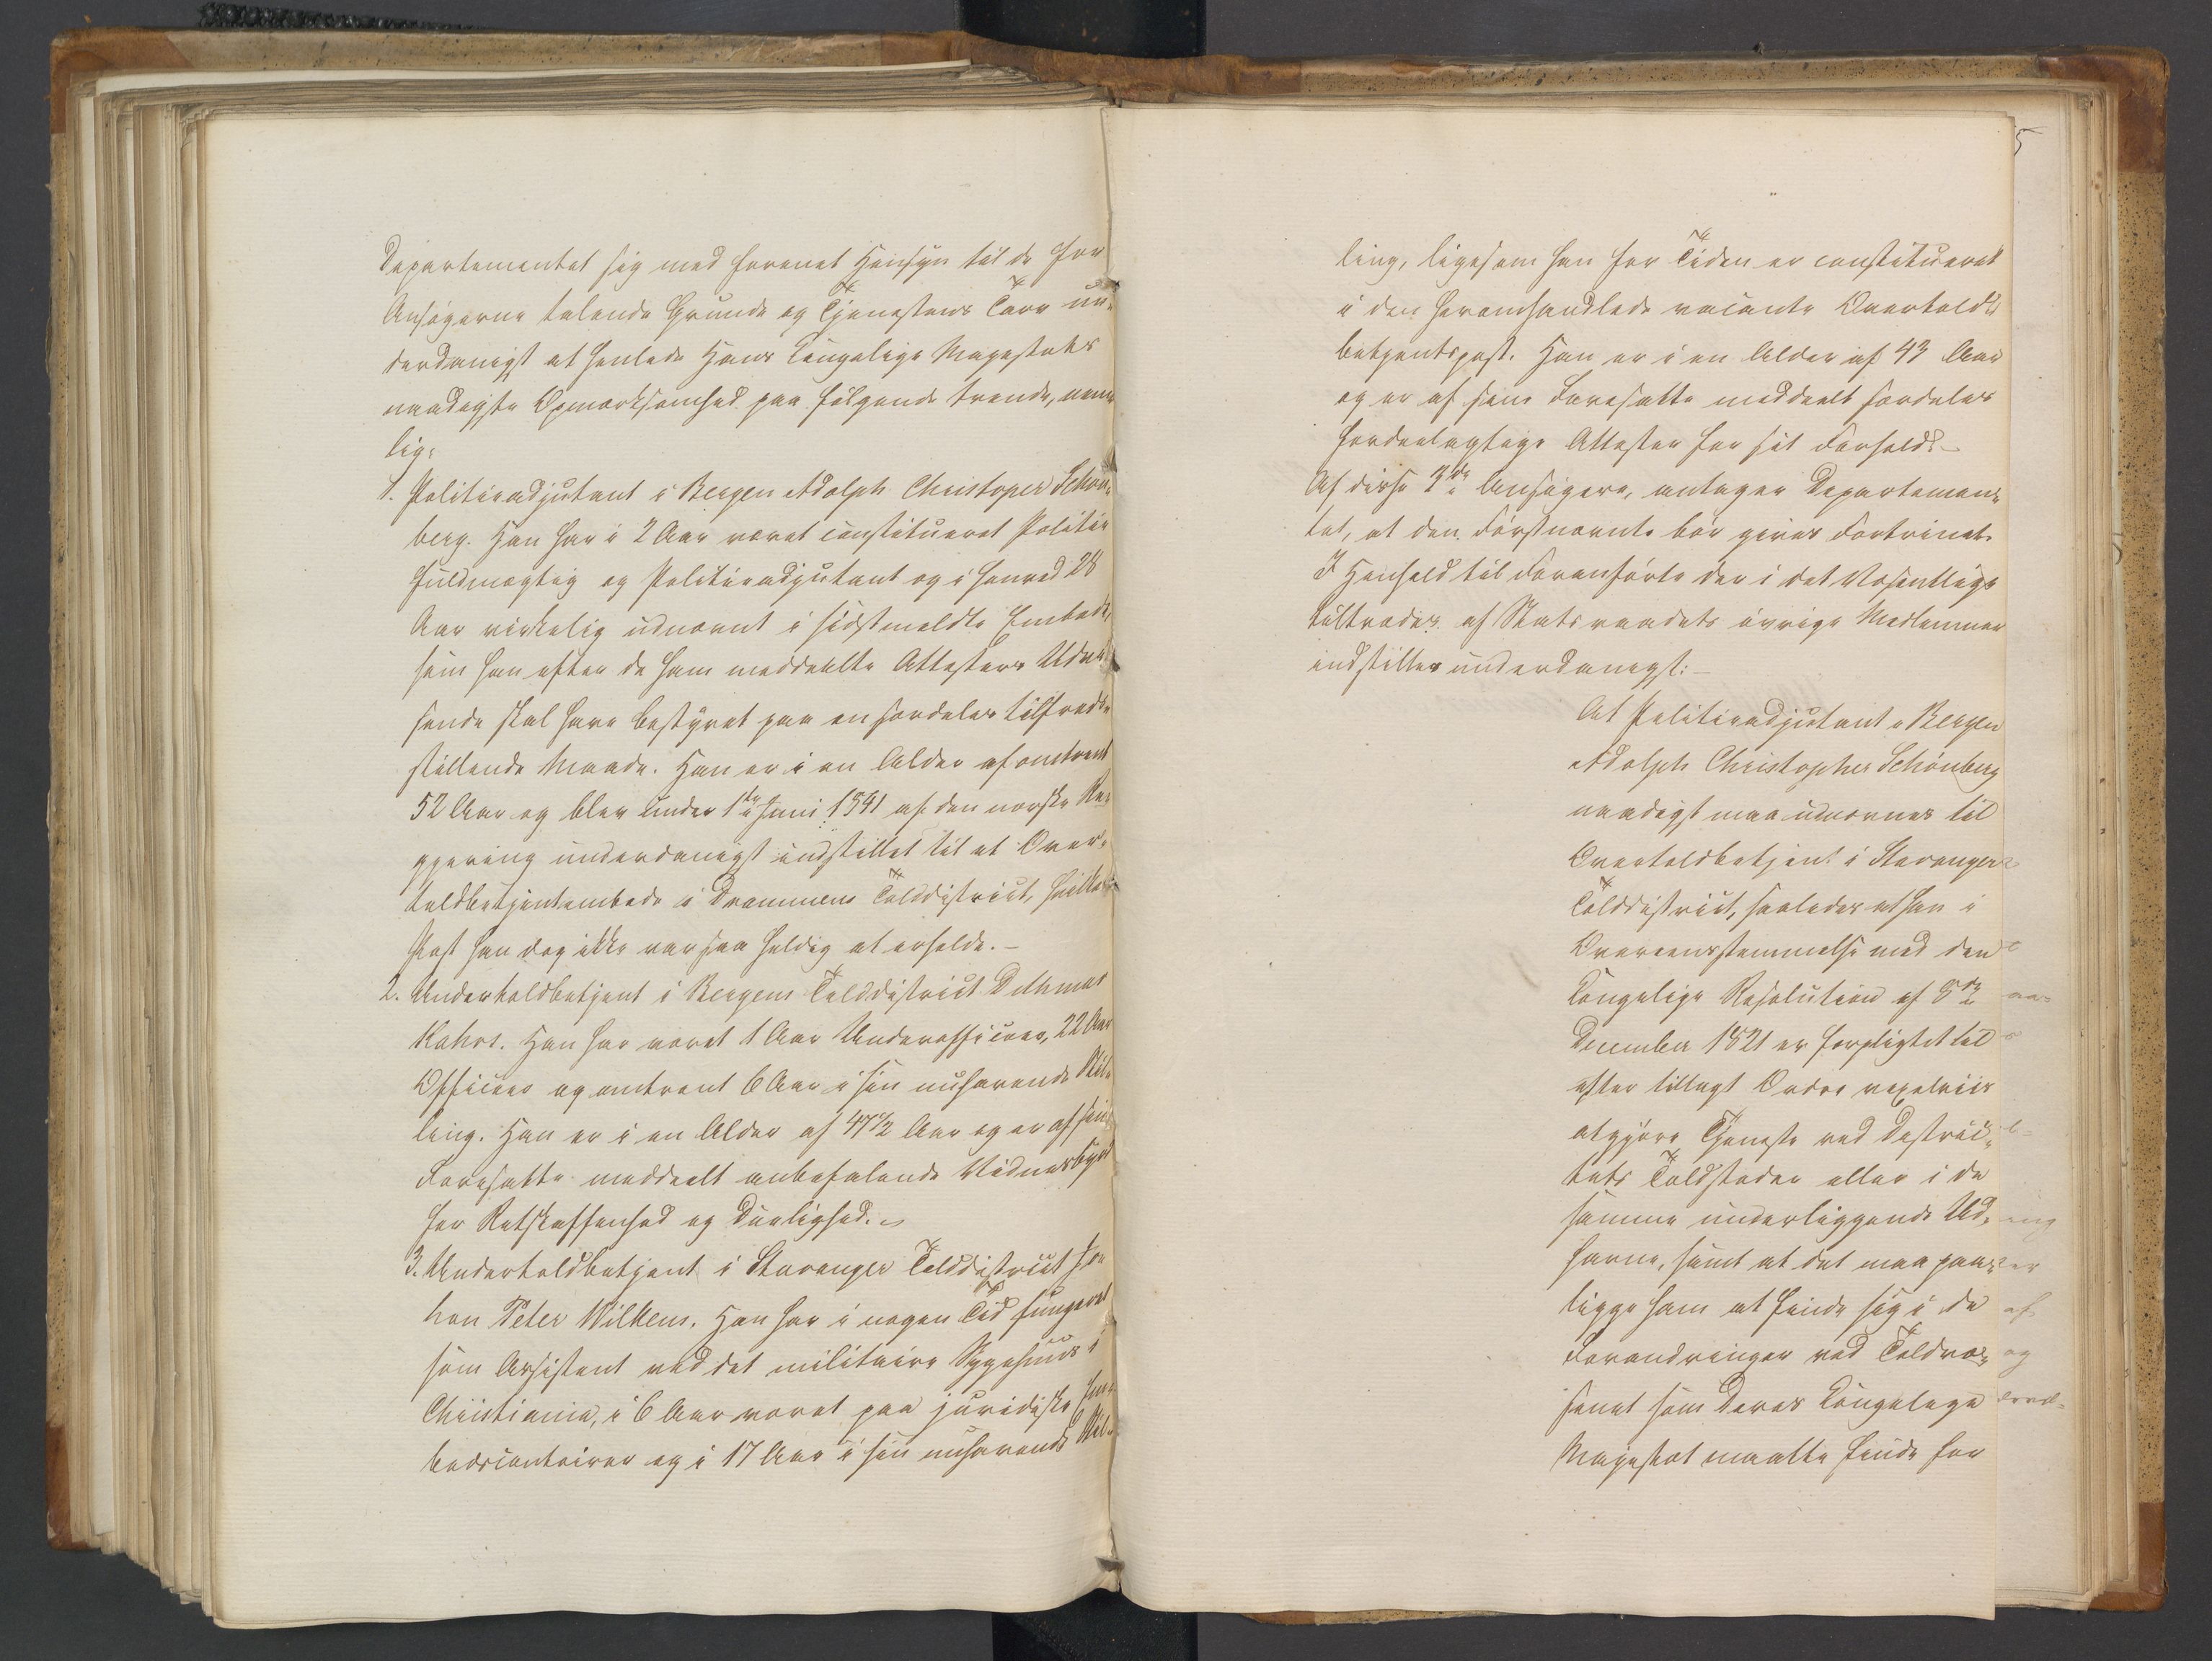 Departementet sig med forenet Hensyn til de for
Ansøgerne talende Grunde og Tjenestens Tarv un-
derdanigst at henlede Hans Kongelige Majestæts
naadigste Opmærksomhed paa følgende trende, nem
lig:
1. Politieadjutant i Bergen Adolph Christoper Schøn-
berg. Han har i 2 Aar været constitueret Politie
fuldmægtig og Politieadjutant og i henved 28
Aar virkelig udnævnt i sidstmeldte Embede,
som han efter de ham meddeelte Attesters Udvi-
sende skal have bestyret paa en særdeles tilfreds-
stillende Maade. Han er i en Alder af omtrent
52 Aar og blev under 1ste Juni 1841 af den norske Re-
gjering underdanigst indstillet til et Over-
toldbetjentembede i Drammens Tolddistrict, hvilken
Post han dog ikke var saa heldig at erholde.-
2. Undertoldbetjent i Bergens Tolddistrict Dethmar
Kahrs. Han har været 1 Aar Underofficeer, 22 Aar
Officeer og omtrent 6 Aar i sin nuhavende Stil-
ling. Han er i en Alder af 47 1/2 Aar og er af sine
Foresatte meddeelt anbefalende Vidnesbyrd
for Retskaffenhed og Duelighed.-
3. Undertoldbetjent i Stavanger Tolddistrict Jo
han Peter Wilkens. Han har i nogen Tid fungeret
som Assistent ved det militaire Sygehuus i
Christiania, i 6 Aar været paa juridiske Em-
bedscontoirer og i 17 Aar i sin nuhavende Stil-
ling, ligesom han for Tiden er constitueret
i den heromhandlede vacante Overtold-
betjentpost. Han er i en Alder af 43 Aar
og er af sine Foresatte meddeelt særdeles
fordeelagtige Attester for sit Forhold.-
Af disse 3de Ansøgere, antager Departemen-
tet, at den Førstnævnte bør gives Fortrinet.
I Henhold til Foranførte der i det Væsentlige
tiltrædes af Statsraadets øvrige Medlemmer
indstilles underdanigst:-
At Politieadjutant i Bergen
Adolph Christopher Schönberg
naadigst maa udnævnes til
Overtoldbetjent i Stavanger
Tolddistrict, saaledes at han i
Overeensstemmelse med den
Kongelige Resolution af 8de
December 1821 er forpligtet til
efter tillagt Ordre vexelviis
at gjøre Tjeneste ved Distric-
tets Toldsteder eller i de
samme underliggende Ud-
havne, samt at det maa paa-
ligge ham at finde sig i de
Forandringer ved Toldvæ-
senet som Deres Kongelige
Majestæt maatte finde for